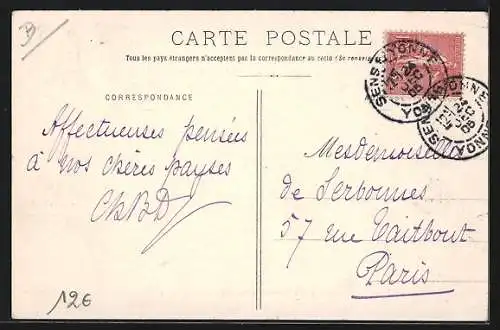 B
CARTE POSTALE
Tous les pays étrangers n'acceptent pas la correspondance au recto
CORRESPONDANCE
SENS YONNE
SENS YONNE
Affectueuses pensées
à nos chères payses
Mesdemoiselles
de Serbonnes
57 rue Taitbout
Paris
12€